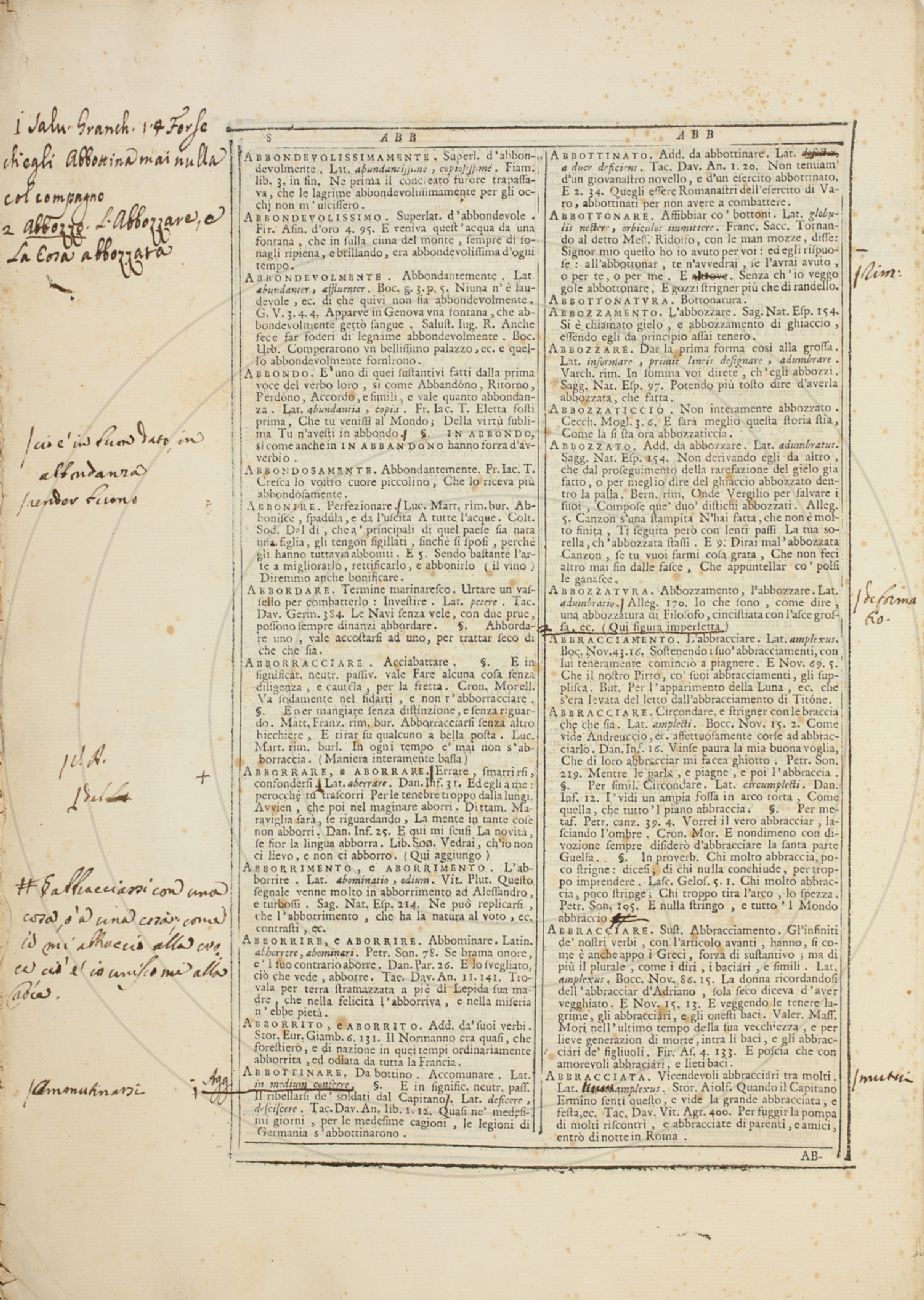 1 Salv. Granch. 1. 4 Forse
ch'egli Abbottina mai nulla
col compagno
2 Abbozzo. L'Abbozzare, e
La Cosa abbozzata
cio è in buon dato, in
abbondanza
render buono
#§ abbracciarsi con una
cosa, o a una cosa: come
io mi abbraccio alla
cio è io unisco me alla
Agg
ammutinarsi
8 ABB
ABBONDEVOLISSIMAMENTE. Superl. d'abbon-
devolmente, Lat. abundantissime, copiosissime. Fiam.
lib. 3. in fin. Ne prima il conceato furore trapassa-
va, che le lagrime abbondevolissimamente per gli oc-
chj non m'uscissero.
ABBONDEVOLISSIMO. Superlat. d'abbondevole.
Fir. Asin. d'oro 4. 95. E veniva quest'acqua da una
fontana, che in sulla cima del monte, sempre di so-
nagli ripiena, e brillando, era abbondevolissima d'ogni
tempo.
ABBONDEVOLMENTE. Abbondantemente. Lat
abundanter, affluenter. Boc. g. 3. p. 5. Niuna n'è lau-
devole, ec. di che quivi non sia abbondevolmente.
G. V. 3. 4. 4. Apparve in Genova vna fontana, che ab-
bondevolmente gettò sangue. Salust. Iug. R. Anche
fece far foderi di legname abbondevolmente. Boc.
Lib. Comperarono vn bellissimo palazzo, ec. e quel-
lo abbondevolmente fornirono.
ABBONDO. E' uno di quei sustantivi fatti dalla prima
voce del verbo loro, sì come Abbandóno, Ritorno,
Perdóno, Accordo, e simili, e vale quanto abbondan-
za. Lat. abundantia, copia. Fr. Iac. T. Eletta fosti
prima, Che tu venissi al Mondo; Della virtù subli-
ma Tu n'avesti in abbondo. §. IN ABBONDO,
sì come anche in IN ABBANDONO hanno forza d'av-
verbio.
ABBONDOSAMENTE. Abbondantemente. Fr. Iac. T.
Cresca lo vostro cuore piccolino, Che lo riceva più
abbondosamente.
ABBONIRE. Perfezionare. Luc. Mart. rim. bur. Ab-
bonisce, spadúla, e dà l'uscita A tutte l'acque. Colt.
Sod. Dal dì, che a' principali di quel paese sia nata
una figlia, gli tengon sigillati, sinchè si sposi, perchè
gli hanno tuttavia abboniti. E 5. Sendo bastante l'ar-
te a migliorarlo, rettificarlo, e abbonirlo ( il vino )
Diremmo anche bonificare.
ABBORDARE. Termine marinaresco. Urtare un vas-
sello per combatterlo: Investire. Lat. petere. Tac.
Dav. Germ. 384. Le Navi senza vele, con due prue,
possono sempre dinanzi abbordare. §. Abborda-
re uno, vale accostarsi ad uno, per trattar seco di
che che sia.
ABBORRACCIARE. Acciabattare. §. E in
significat. neutr. passiv. vale Fare alcuna cosa senza
diligenza, e cautéla, per la fretta. Cron. Morell.
Va sodamente nel fidarti, e non t'abborracciare.
§. E per mangiare senza distinzione, e senza riguar-
do. Matt. Franz. rim. bur. Abborracciarsi senza altro
bicchiere, E tirar su qualcuno a bella posta. Luc.
Mart. rim. burl. In ogni tempo e' mai non s'ab-
borraccia. (Maniera interamente bassa)
ABBORRARE, e ABORRARE. Errare, smarrirsi,
confondersi. Lat. aberrare. Dan. Inf. 31. Ed egli a me:
perocchè tu trascorri Per le tenebre troppo dalla lungi.
Avvien, che poi nel maginare aborri. Dittam. Ma-
raviglia sarà, se riguardando, La mente in tante cose
non abborri. Dan. Inf. 25. E qui mi scusi La novità,
se fior la lingua abborra. Lib. Son. Vedrai, ch'io non
ci lievo, e non ci abborro. ( Qui aggiungo )
ABBORRIMENTO, e ABORRIMENTO. L'ab-
borrire. Lat. abominatio, odium. Vit. Plut. Questo
segnale venne molto in abborrimento ad Alessandro,
e turbossi. Sag. Nat. Esp. 214. Ne può replicarsi,
che l'abborrimento, che ha la natura al voto, ec.
contrasti, ec.
ABBORRIRE, e ABORRIRE. Abbominare. Latin.
abhorrere, abominari. Petr. Son. 78. Se brama onore,
e'l suo contrario aborre. Dan. Par. 26. E lo svegliato,
ciò che vede, abborre. Tac. Dav. An. 11. 141. Tro-
vala per terra stramazzata a piè di Lepida sua ma-
dre, che nella felicità l'abborriva, e nella miseria
n'ebbe pietà.
ABBORRITO, e ABORRITO. Add. da'suoi verbi.
Stor. Eur. Giamb. 6. 131. Il Normanno era quasi, che
forestiero, e di nazione in quei tempi ordinariamente
abborrita, ed odiata da tutta la Francia.
ABBOTTINARE. Da bottino. Accomunare. Lat.
in medium conferre. §. E in signific. neutr. pass.
Il ribellarsi de' soldati dal Capitano. Lat. deficere,
desciscere. Tac. Dav. An. lib. 1. 12. Quasi ne' medesi-
mi giorni, per le medesime cagioni, le legioni di
Germania s'abbottinarono.
ABB
ABBOTTINATO. Add. da abbottinare. Lat.
a duce deficiens. Tac. Dav. An. 1. 20. Non teniam'
d'un giovanastro novello, e d'un esercito abbottinato.
E 2. 34. Quegli essere Romanastri dell'esercito di Va-
ro, abbottinati per non avere a combattere.
ABBOTTONARE. Affibbiar co' bottoni. Lat. globu-
lis nectere, orbiculos immittere. Franc. Sacc. Tornan-
do al detto Mess. Ridolfo, con le man mozze, disse:
Signor mio questo ho io avuto per voi: ed egli rispuo-
se: all'abbottonar, te n'avvedrai, se l'avrai avuto,
o per te, o per me. E Senza ch'io veggo
gole abbottonare, E gozzi strigner più che di randello.
ABBOTTONATVRA. Bottonatura.
ABBOZZAMENTO. L'abbozzare. Sag. Nat. Esp. 154.
Si è chiamato gielo, e abbozzamento di ghiaccio,
essendo egli da principio assai tenero.
ABBOZZARE. Dar la prima forma così alla grossa.
Lat. informare, primis lineis designare, adumbrare.
Varch. rim. In somma voi direte, ch'egli abbozzi.
Sagg. Nat. Esp. 97. Potendo più tosto dire d'averla
abbozzata, che fatta.
ABBOZZATICCIO. Non interamente abbozzato.
Cecch. Mogl. 3. 6. E sarà meglio questa storia stia,
Come la si sta ora abbozzaticcia.
ABBOZZATO. Add. da abbozzare. Lat. adumbratus.
Sagg. Nat. Esp. 154. Non derivando egli da altro,
che dal proseguimento della rarefazione del gielo già
fatto, o per meglio dire del ghiaccio abbozzato den-
tro la palla. Bern. rim, Onde Vergilio per salvare i
suoi, Compose que' duo' distichi abbozzati. Alleg.
5. Canzon s'una stampita N'hai fatta, che non è mol-
to finita, Ti seguita però con lenti passi La tua so-
rella, ch'abbozzata stassi. E 9. Dirai mal'abbozzata
Canzon, se tu vuoi farmi cosa grata, Che non feci
altro mai fin dalle fasce, Che appuntellar co' polsi
le ganasce.
ABBOZZATVRA. Abbozzamento, l'abbozzare. Lat.
adumbratio. Alleg. 170. Io che sono, come dire,
una abbozzatura di Filosofo, cincistiata con l'asce gros-
sa, ec. (Qui figura imperfetta)
ABBRACCIAMENTO. L'abbracciare. Lat. amplexus.
Boc. Nov. 43. 16. Sostenendo i suo' abbracciamenti, con
lui teneramente cominciò a piagnere. E Nov. 69. 5.
Che il nostro Pirro, co' suoi abbracciamenti, gli sup-
plisca. But. Per l'apparimento della Luna, ec. che
s'era levata del letto dall'abbracciamento di Titóne.
ABBRACCIARE. Circondare, e strigner con le braccia
che che sia. Lat. amplecti. Bocc. Nov. 15. 2. Come
vide Andreuccio, ec. affettuosamente corse ad abbrac-
ciarlo. Dan. Inf. 16. Vinse paura la mia buona voglia,
Che di loro abbracciar mi facea ghiotto. Petr. Son.
219. Mentre le parla, e piagne, e poi l'abbraccia.
§. Per simil. Circondare. Lat. circumplecti. Dan.
Inf. 12. I' vidi un ampia fossa in arco torta, Come
quella, che tutto'l piano abbraccia. §. Per me-
taf. Petr. canz. 39. 4. Vorrei il vero abbracciar, la-
sciando l'ombre. Cron. Mor. E nondimeno con di-
vozione sempre disiderò d'abbracciare la santa parte
Guelfa. §. In proverb. Chi molto abbraccia, po-
co strigne: dicesi, di chi nulla conchiude, per trop-
po imprendere. Lasc. Gelos. 5. 1. Chi molto abbrac-
cia, poco stringe: Chi troppo tira l'arco, lo spezza.
Petr. Son. 195. E nulla stringo, e tutto'l Mondo
abbraccio
ABBRACCIARE. Sust. Abbracciamento. Gl'infiniti
de' nostri verbi, con l'articolo avanti, hanno, sì co-
me è anche appo i Greci, forza di sustantivo; ma di
più il plurale, come i diri, i baciári, e simili. Lat.
amplexus. Bocc. Nov. 86. 15. La donna ricordandosi
dell'abbracciar d'Adriano, sola seco diceva d'aver
vegghiato. E Nov. 15. 13. E veggendo le tenere la-
grime, gli abbracciári, e gli onesti baci. Valer. Mass.
Morì nell'ultimo tempo della sua vecchiezza, e per
lieve generazion di morte, intra li baci, e gli abbrac-
ciári de' figliuoli. Fir. As. 4. 133. E poscia che con
amorevoli abbracciári, e lieti baci.
ABBRACCIATA. Vicendevoli abbracciári tra molti.
Lat. amplexus. Stor. Aiolf. Quando il Capitano
Ermino sentì questo, e vide la grande abbracciata, e
festa, ec. Tac. Dav. Vit. Agr. 400. Per fuggir la pompa
di molti riscontri, e abbracciate di parenti, e amici,
entrò di notte in Roma.
AB-
Rim:
deforma
tio.
mutui